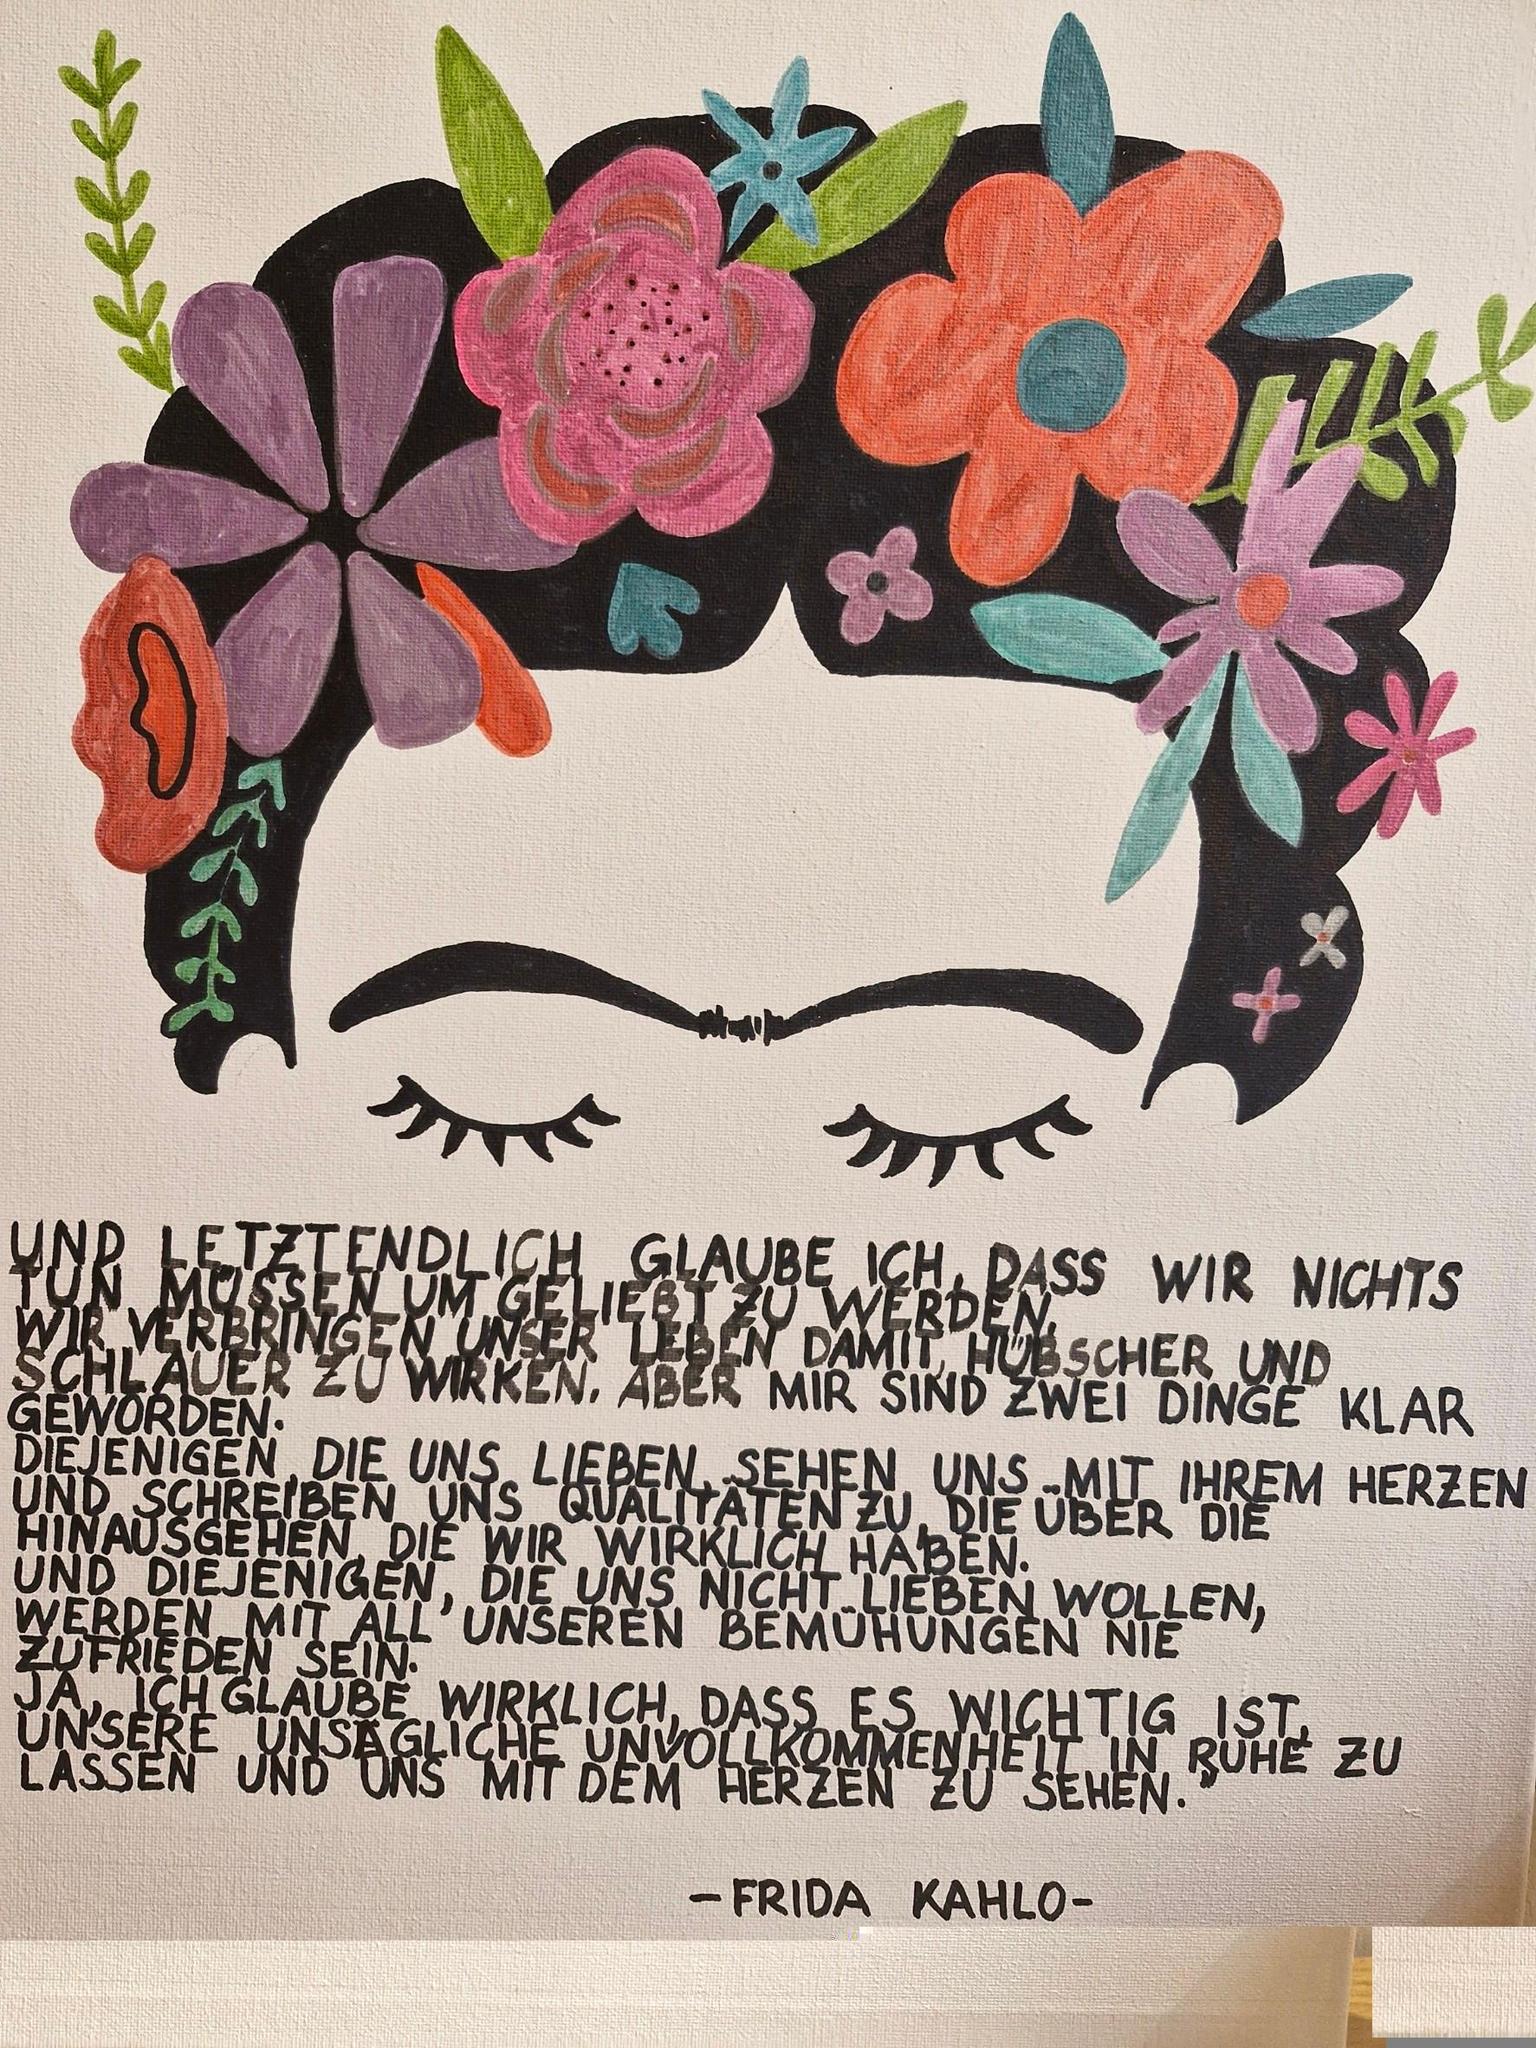 UND LETZTENDLICH GLAUBE ICH, DASS WIR NICHTS
TUN MÜSSEN UM GELIEBT ZU WERDEN.
WIR VERBRINGEN UNSER LEBEN DAMIT, HÜBSCHER UND
SCHLAUER ZU WIRKEN. ABER MIR SIND ZWEI DINGE KLAR
GEWORDEN.
DIEJENIGEN, DIE UNS LIEBEN, SEHEN UNS MIT IHREM HERZEN
UND SCHREIBEN UNS QUALITÄTEN ZU, DIE ÜBER DIE
HINAUSGEHEN, DIE WIR WIRKLICH HABEN.
UND DIEJENIGEN, DIE UNS NICHT LIEBEN WOLLEN,
WERDEN MIT ALL' UNSEREN BEMÜHUNGEN NIE
ZUFRIEDEN SEIN.
JA, ICH GLAUBE WIRKLICH, DASS ES WICHTIG IST,
UNSERE UNSÄGLICHE UNVOLLKOMMENHEIT IN RUHE ZU
LASSEN UND UNS MIT DEM HERZEN ZU SEHEN."
-FRIDA KAHLO-